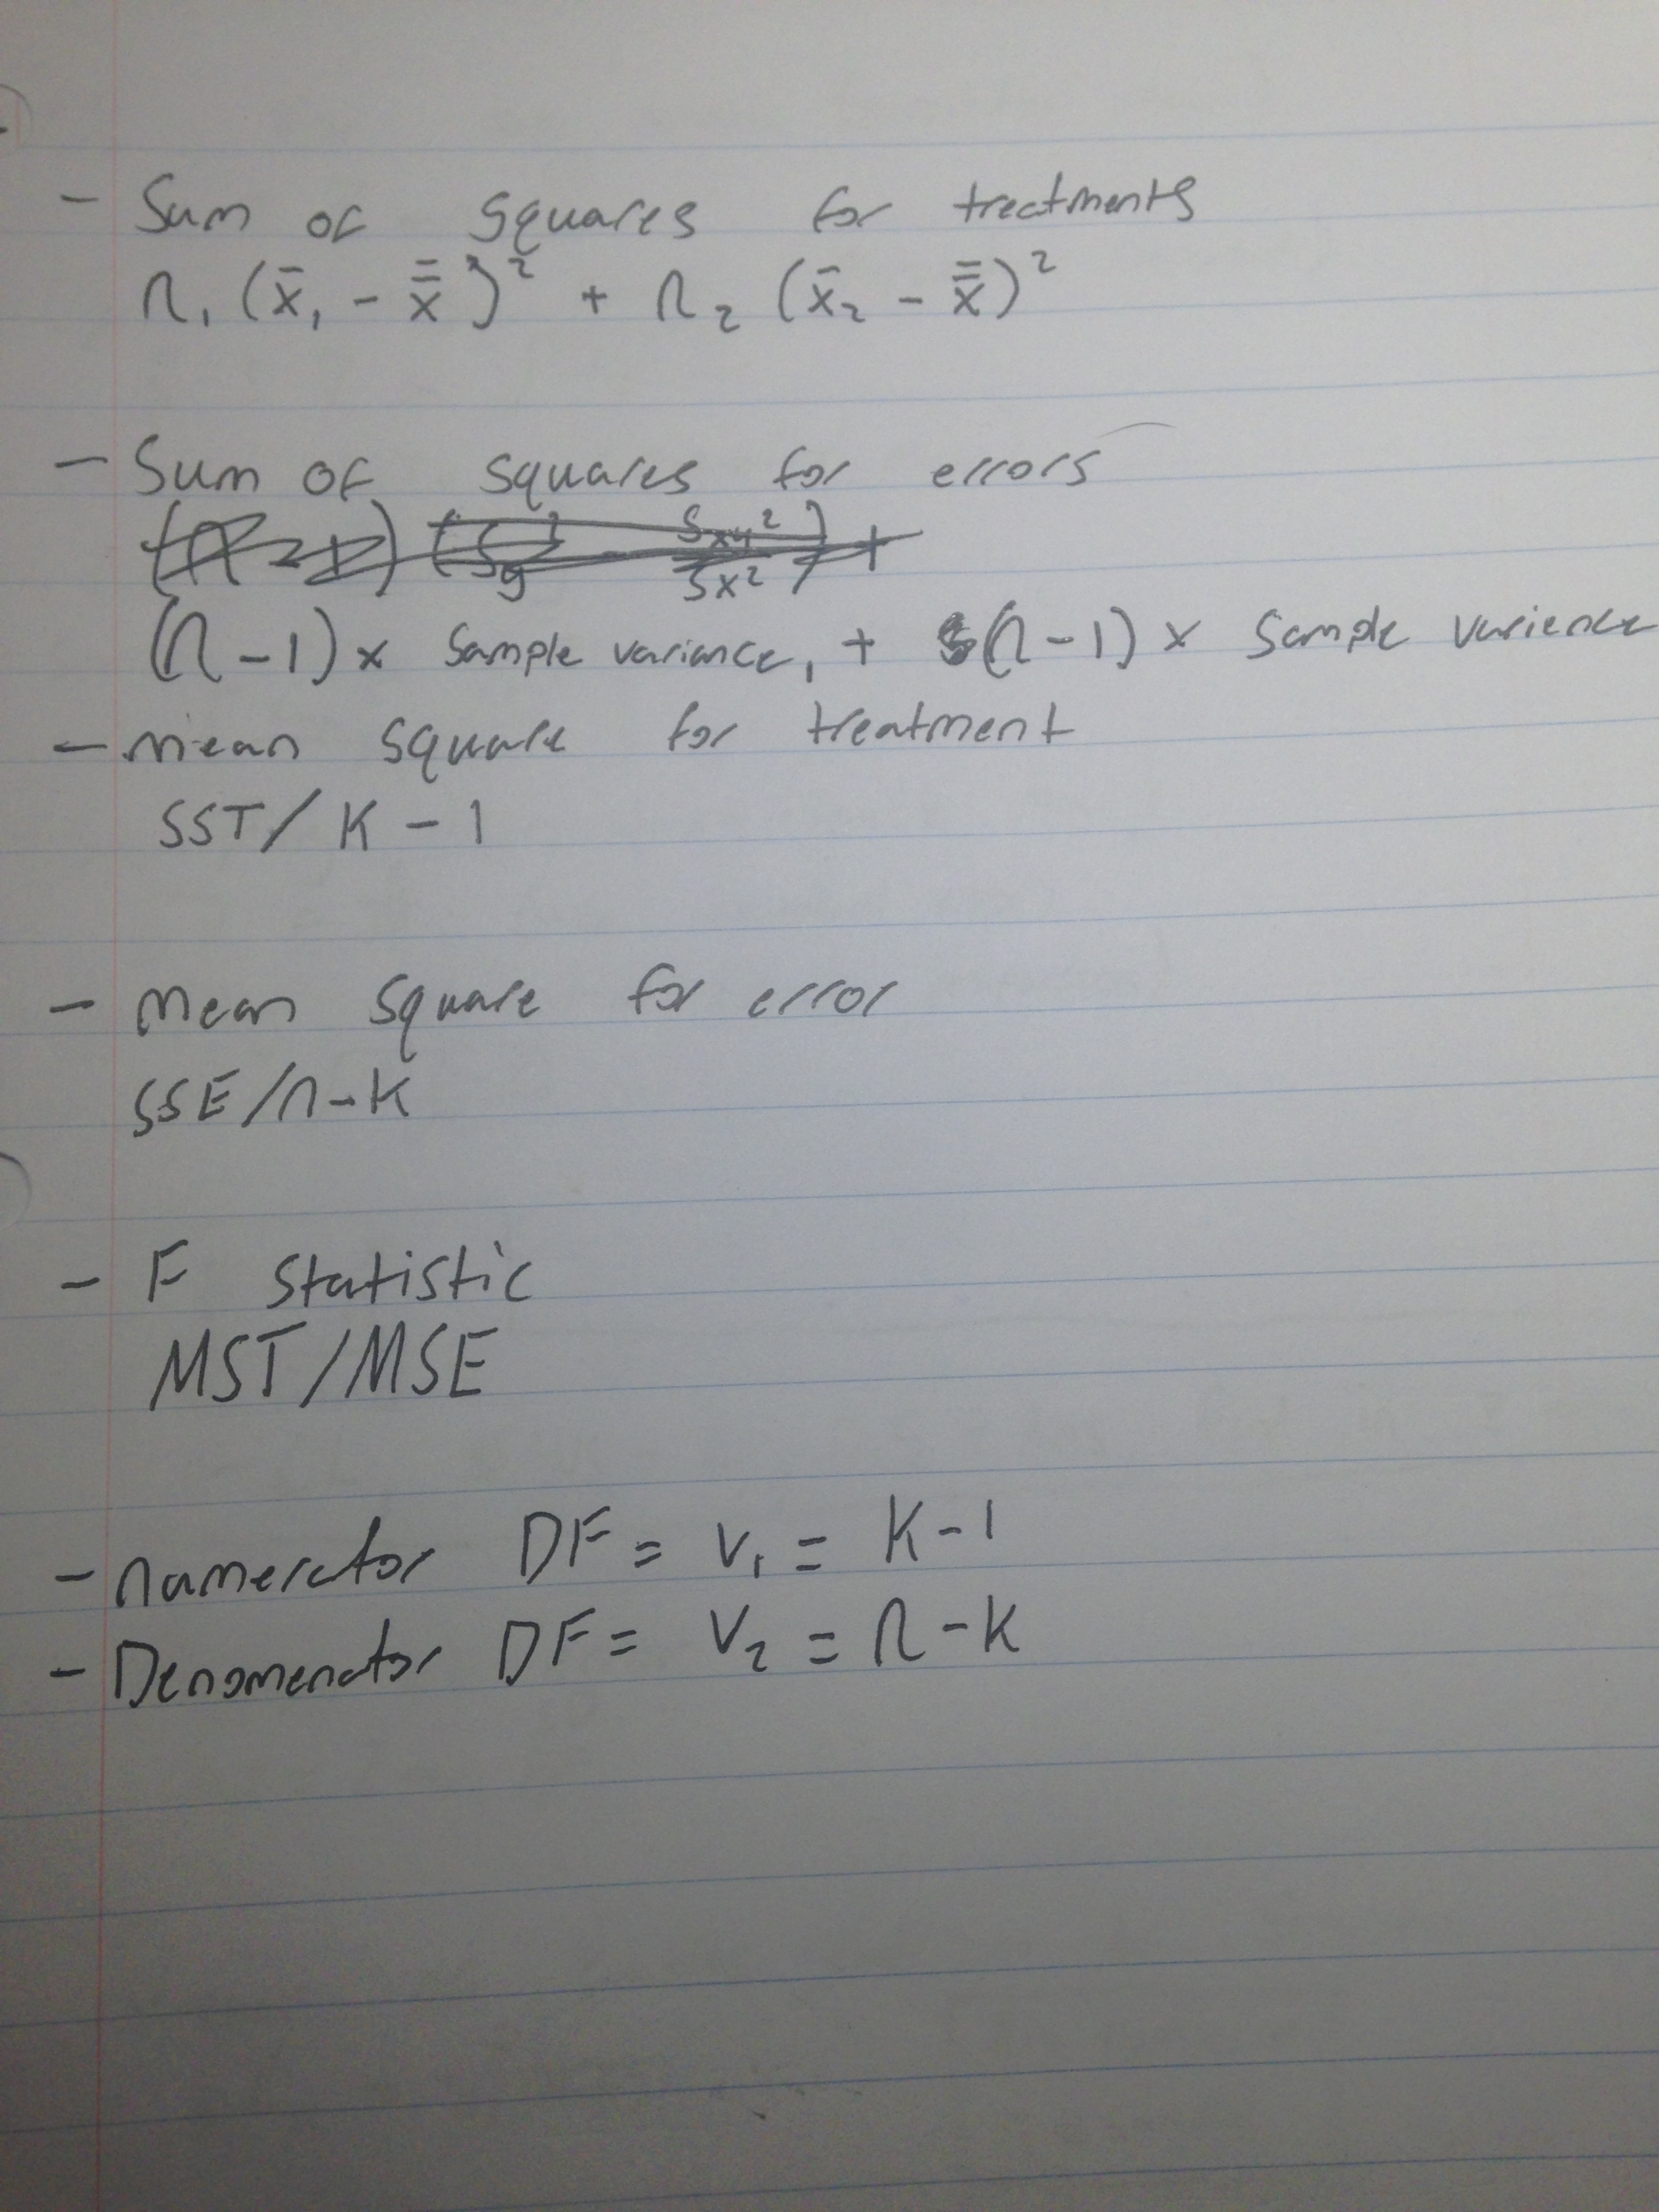 - Sum of squares for treatments
n₁(x̄₁ - x̿)² + n₂(x̄₂ - x̿)²
- Sum of squares for errors
(n-1) x Sample variance₁ + (n-1) x Sample varience
- Mean square for treatment
SST/K-1
- Mean square for error
SSE/n-K
- F Statistic
MST/MSE
- numerator DF = V₁ = K-1
- Denomenator DF = V₂ = n-K